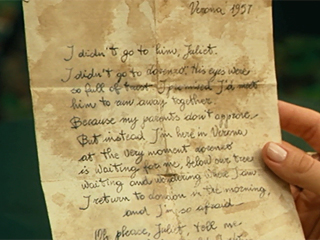 Verona 1957
I didn't go to him, Juliet.
I didn't go to Lorenzo. His eyes were
so full of trust. I promised I'd meet
him to run away together.
Because my parents don't approve.
But instead I'm here in Verona
at the very moment Lorenzo
is waiting for me, below our tree
waiting and wondering where I am.
I return to London in the morning,
and I'm so afraid.
Oh please, Juliet, tell me